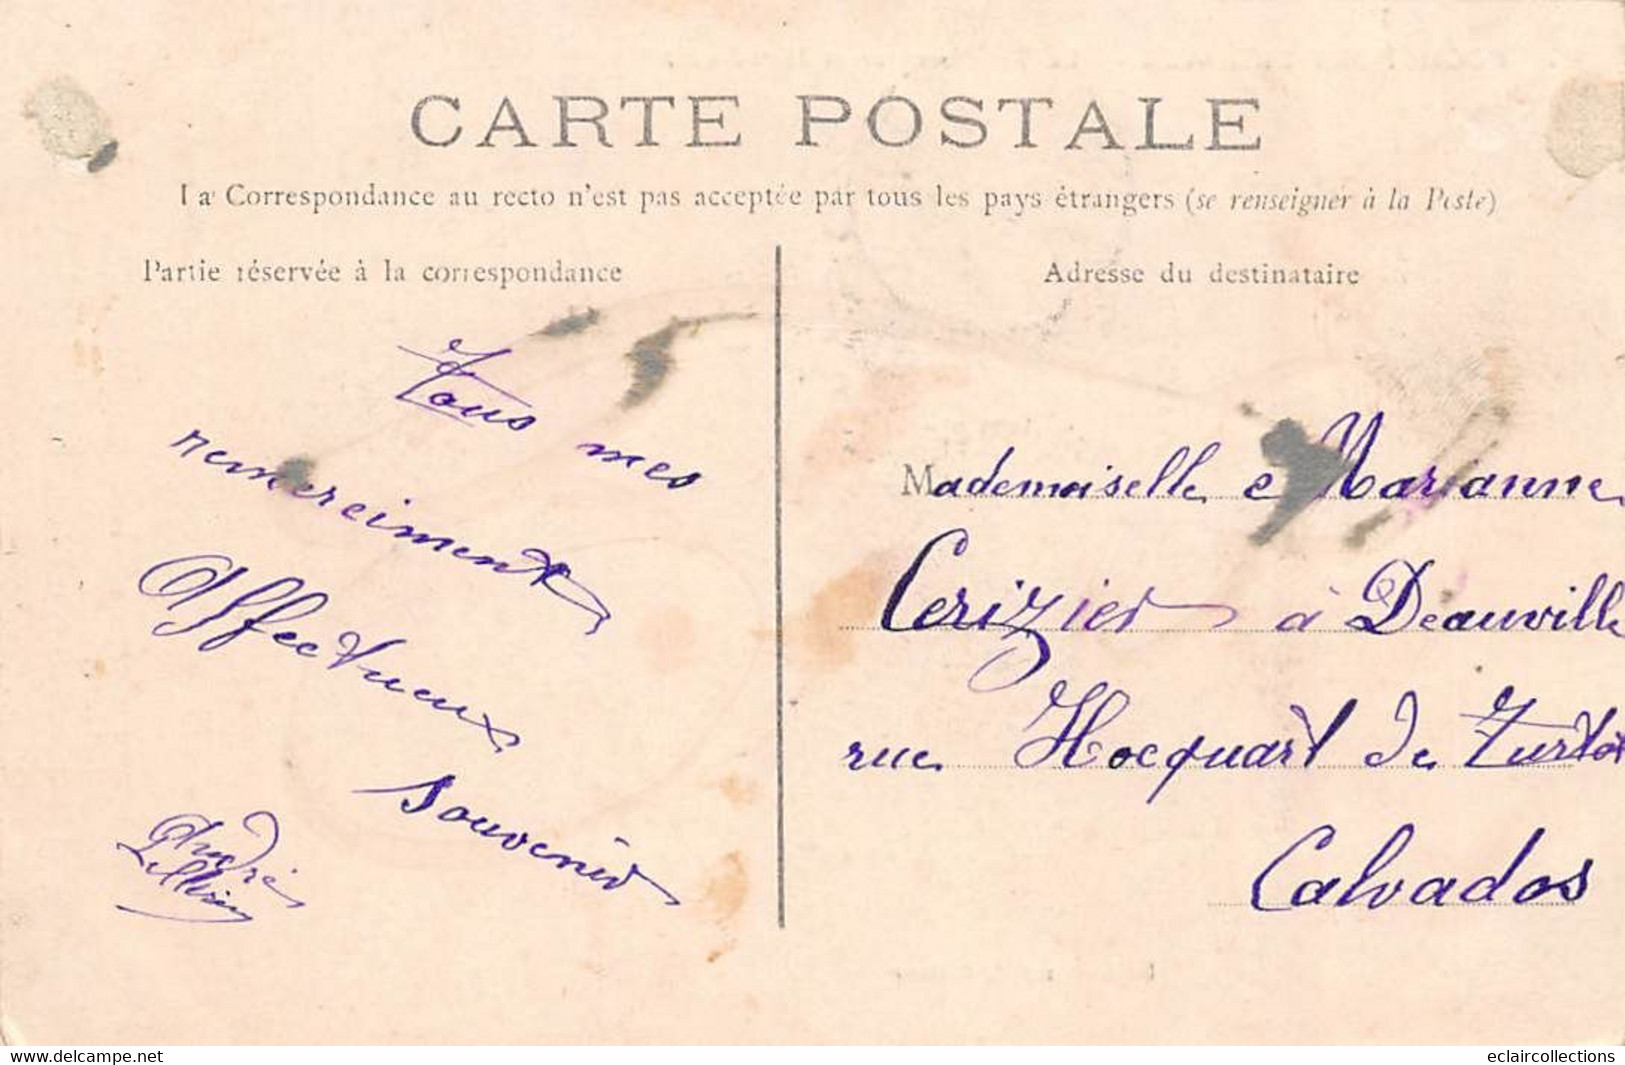 CARTE POSTALE
La Correspondance au recto n'est pas acceptée par tous les pays étrangers (se renseigner à la Poste)
Partie réservée à la correspondance
Tous mes
remerciment
Affectueux
souvenir
André
Adresse du destinataire
Mademoiselle Marianne
Cerizier à Deauville
rue Hocquart de Turtot
Calvados
www.delcampe.net
eclaircollections